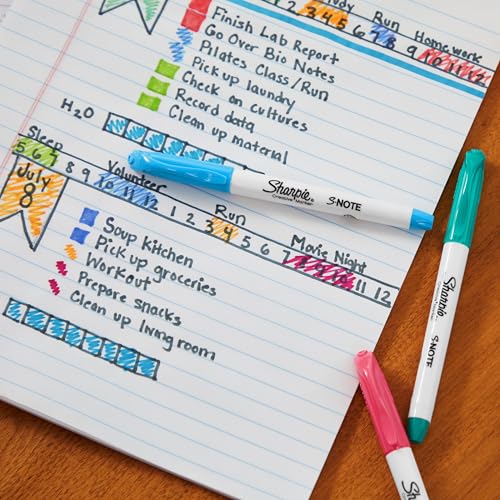 Study Run Homework
3 4 5 6 7 8 9 10 11 12
Finish Lab Report
Go Over Bio Notes
Pilates Class/Run
Pick up laundry
Check on cultures
Record data
Clean up material
H2O
Sleep Volunteer Run Movie Night
5 6 7 8 9 10 11 12 1 2 3 4 5 6 7 8 9 10 11 12
July
8
Soup Kitchen
Pick up groceries
Workout
Prepare snacks
Clean up living room
Sharpie®
Creative Marker
S·NOTE
Sharpie
S·NOTE
Sha